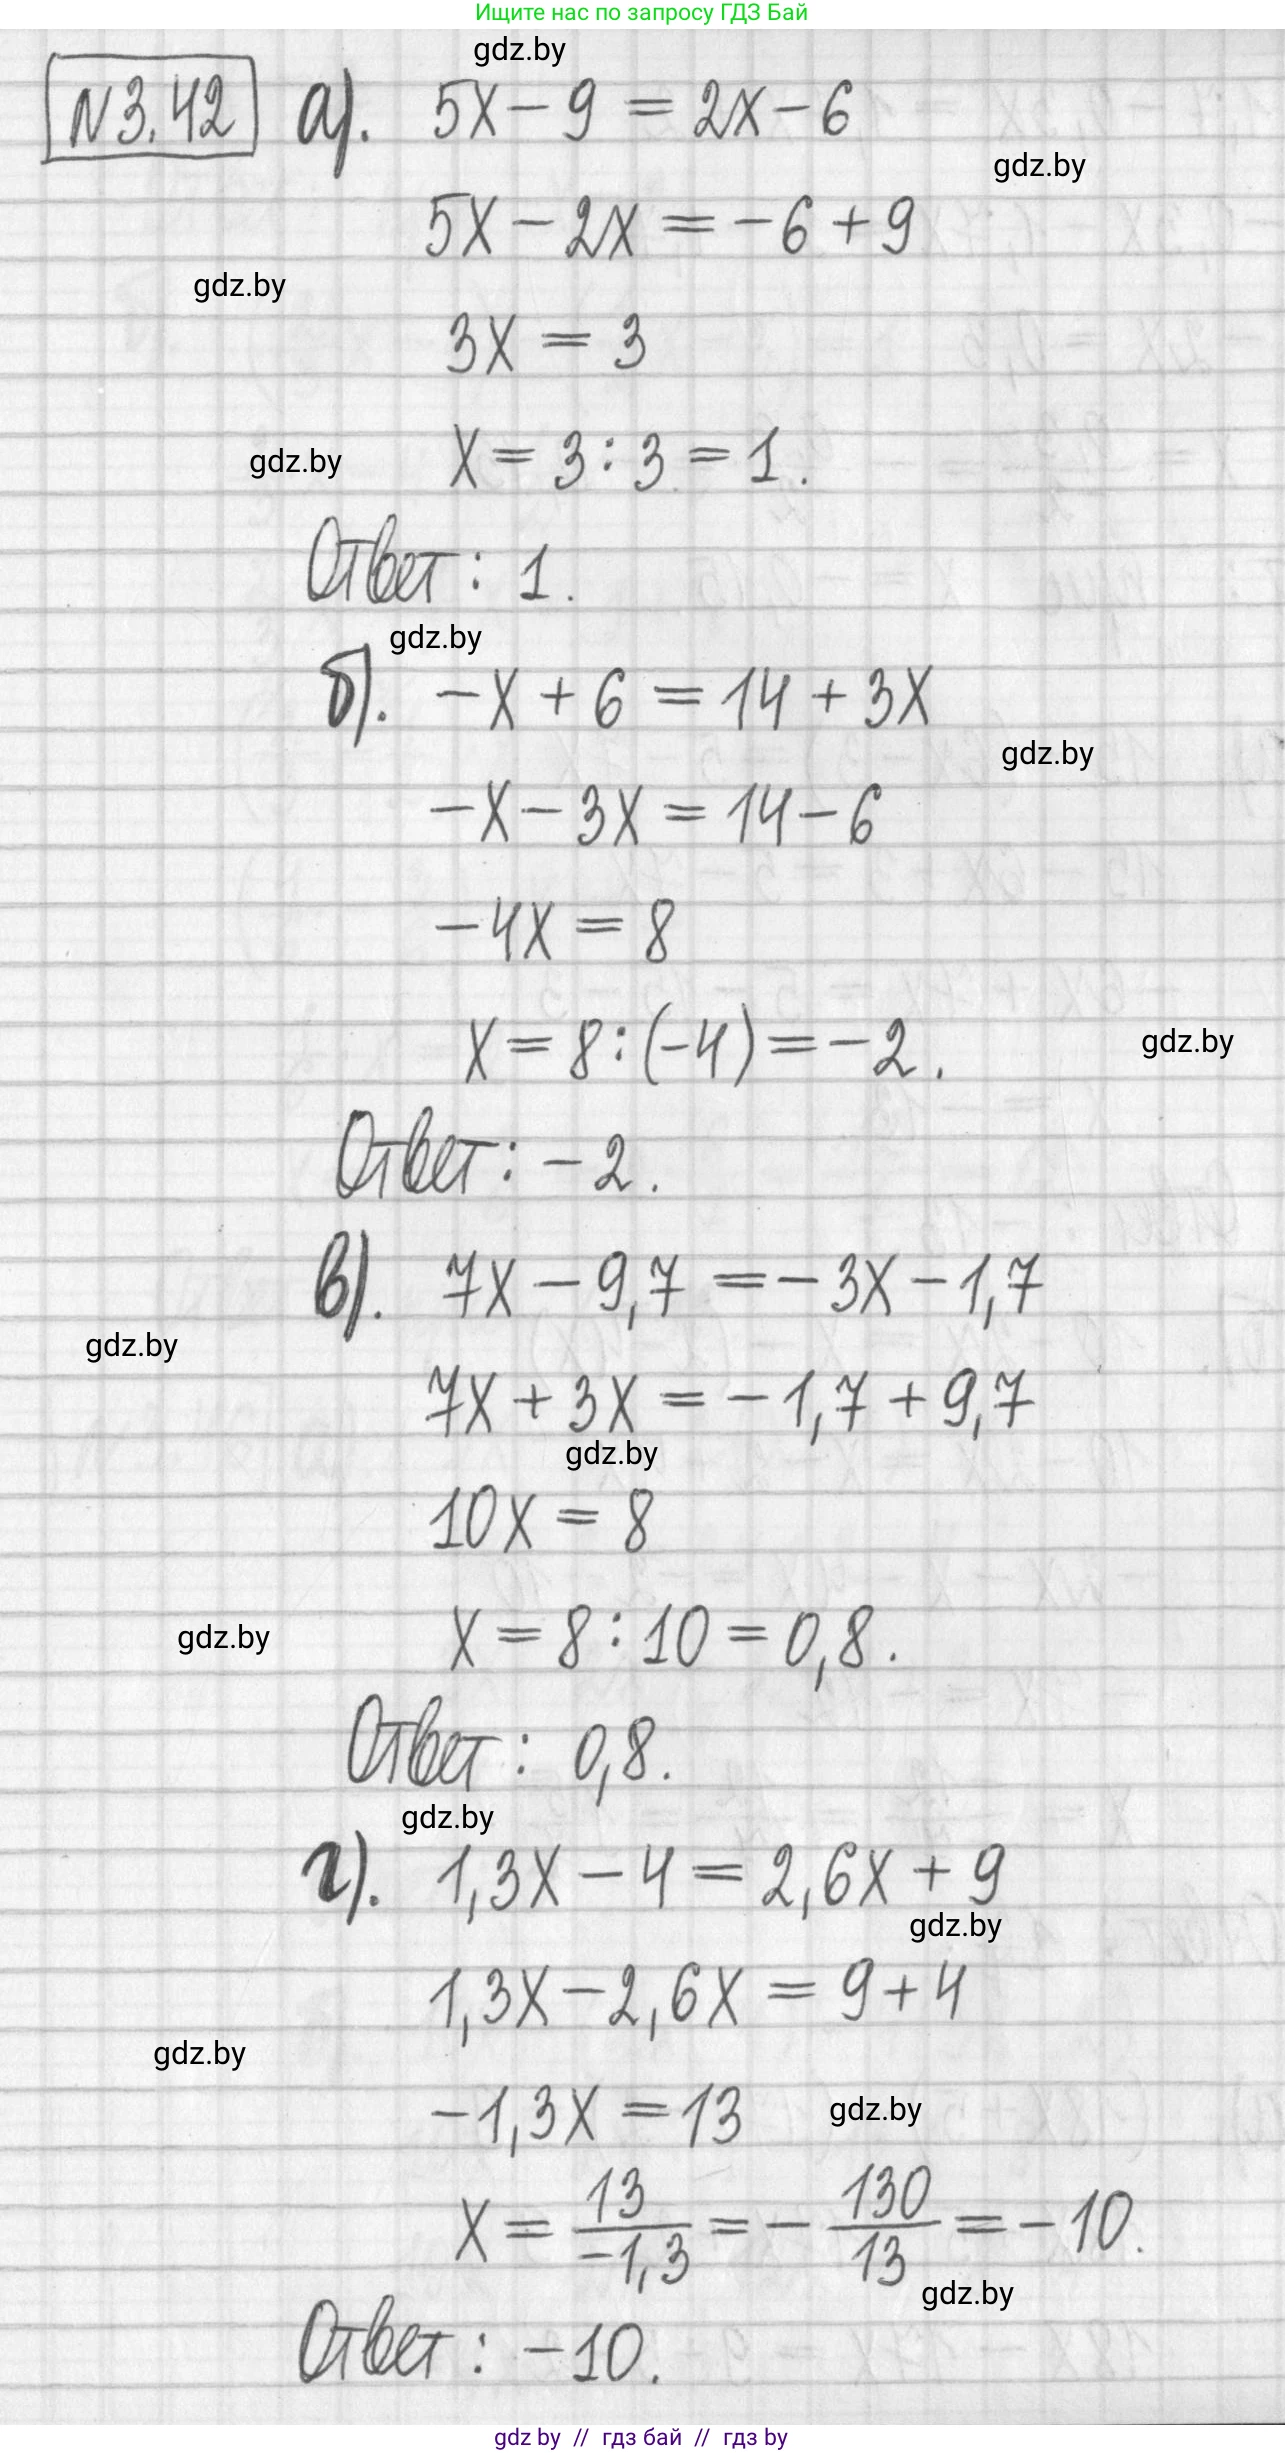 Ищите нас по запросу ГДЗ Бай
gdz.by
N3.42 а). 5x - 9 = 2x - 6
gdz.by
5x - 2x = -6 + 9
gdz.by
3x = 3
gdz.by
x = 3 : 3 = 1.
Ответ : 1.
gdz.by
б). -x + 6 = 14 + 3x
gdz.by
-x - 3x = 14 - 6
-4x = 8
x = 8 : (-4) = -2.
gdz.by
Ответ : -2.
в). 7x - 9,7 = -3x - 1,7
gdz.by
7x + 3x = -1,7 + 9,7
gdz.by
10x = 8
gdz.by
x = 8 : 10 = 0,8.
Ответ : 0,8.
gdz.by
г). 1,3x - 4 = 2,6x + 9
gdz.by
1,3x - 2,6x = 9 + 4
gdz.by
-1,3x = 13
gdz.by
x = 13/-1,3 = - 130/13 = -10.
gdz.by
Ответ : -10.
gdz by // гдз бай // гдз by